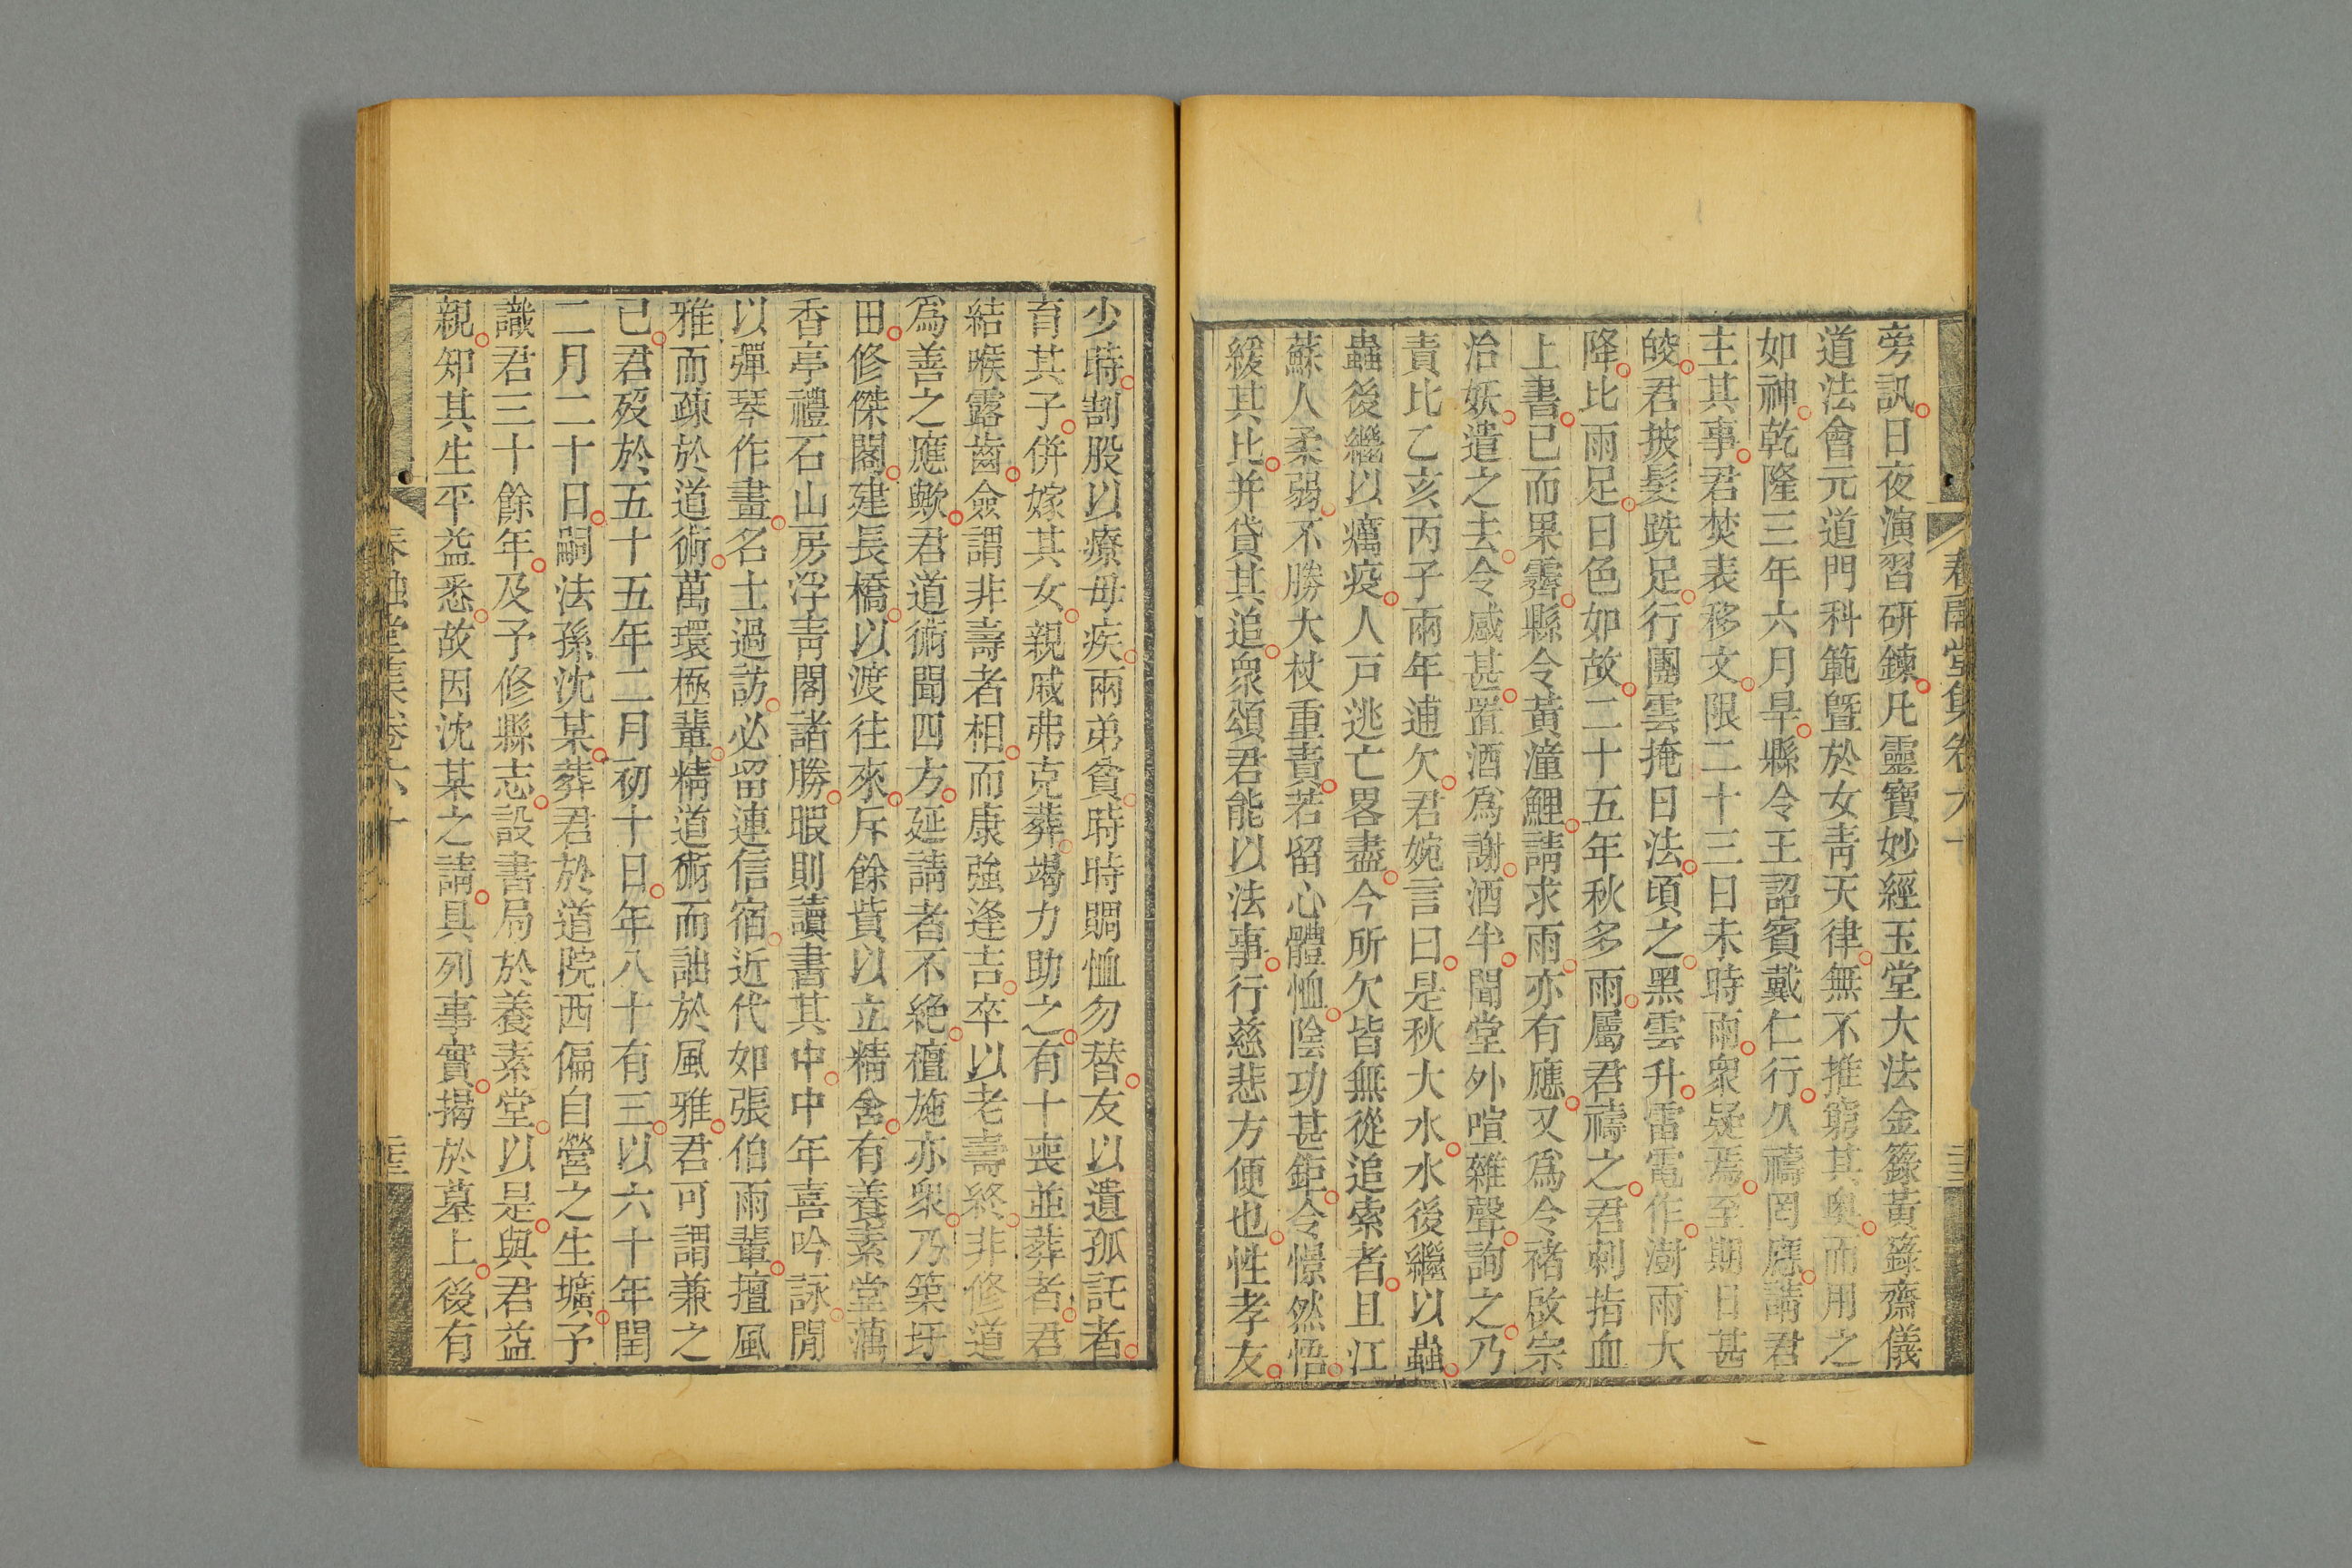 旁訊日夜演習研鍊凡靈寶妙經玉堂大法金籙黃籙齋儀
道法會元道門科範暨於女靑天律無不推窮其奧而用之
如神乾隆三年六月旱縣令王詔賓戴仁行久禱罔應請君
主其事君焚表移文限二十三日未時雨衆疑焉至期日甚
皎君披髮跣足行團雲掩日法頃之黑雲升雷電作澍雨大
降比雨足日色如故二十五年秋多雨屬君禱之君刺指血
上書已而果霽縣令黃潼鯉請求雨亦有應又爲令褚啟宗
治妖遣之去令感甚置酒爲謝酒半聞堂外喧雜聲詢之乃
責比乙亥丙子兩年逋欠君婉言曰是秋大水水後繼以蟲
蟲後繼以癘疫人戸逃亡畧盡今所欠皆無從追索者且江
蘇人柔弱不勝大杖重責若留心體恤陰功甚鉅令憬然悟
緩其比并貸其追衆頌君能以法事行慈悲方便也性孝友
少時割股以療母疾兩弟貧時時賙恤勿替友以遺孤託者
育其子併嫁其女親戚弗克葬竭力助之有十喪並葬者君
結喉露齒僉謂非壽者相而康強逢吉卒以老壽終非修道
爲善之應歟君道術聞四方延請者不絶檀施亦衆乃築圩
田修傑閣建長橋以渡往來斥餘貲以立精舍有養素堂蕅
香亭禮石山房浮靑閣諸勝暇則讀書其中中年喜吟詠閒
以彈琴作畫名士過訪必留連信宿近代如張伯雨輩擅風
雅而疎於道術萬環極輩精道術而詘於風雅君可謂兼之
已君歿於五十五年二月初十日年八十有三以六十年閏
二月二十日嗣法孫沈某葬君於道院西偏自營之生壙予
識君三十餘年及予修縣志設書局於養素堂以是與君益
親知其生平益悉故因沈某之請具列事實揭於墓上後有